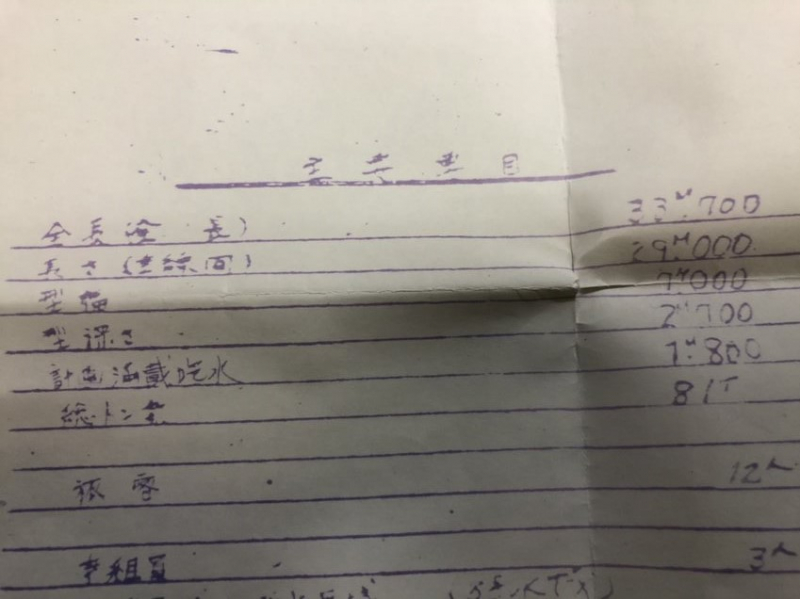 主要要目
全長(登 長) 33ᴹ.700
長さ( 線間) 29ᴹ.000
型幅 7ᴹ000
型深さ 2ᴹ700
計画満載吃水 1ᴹ.800
総トン数 81ᵀ
旅客 12人
乗組員 3人